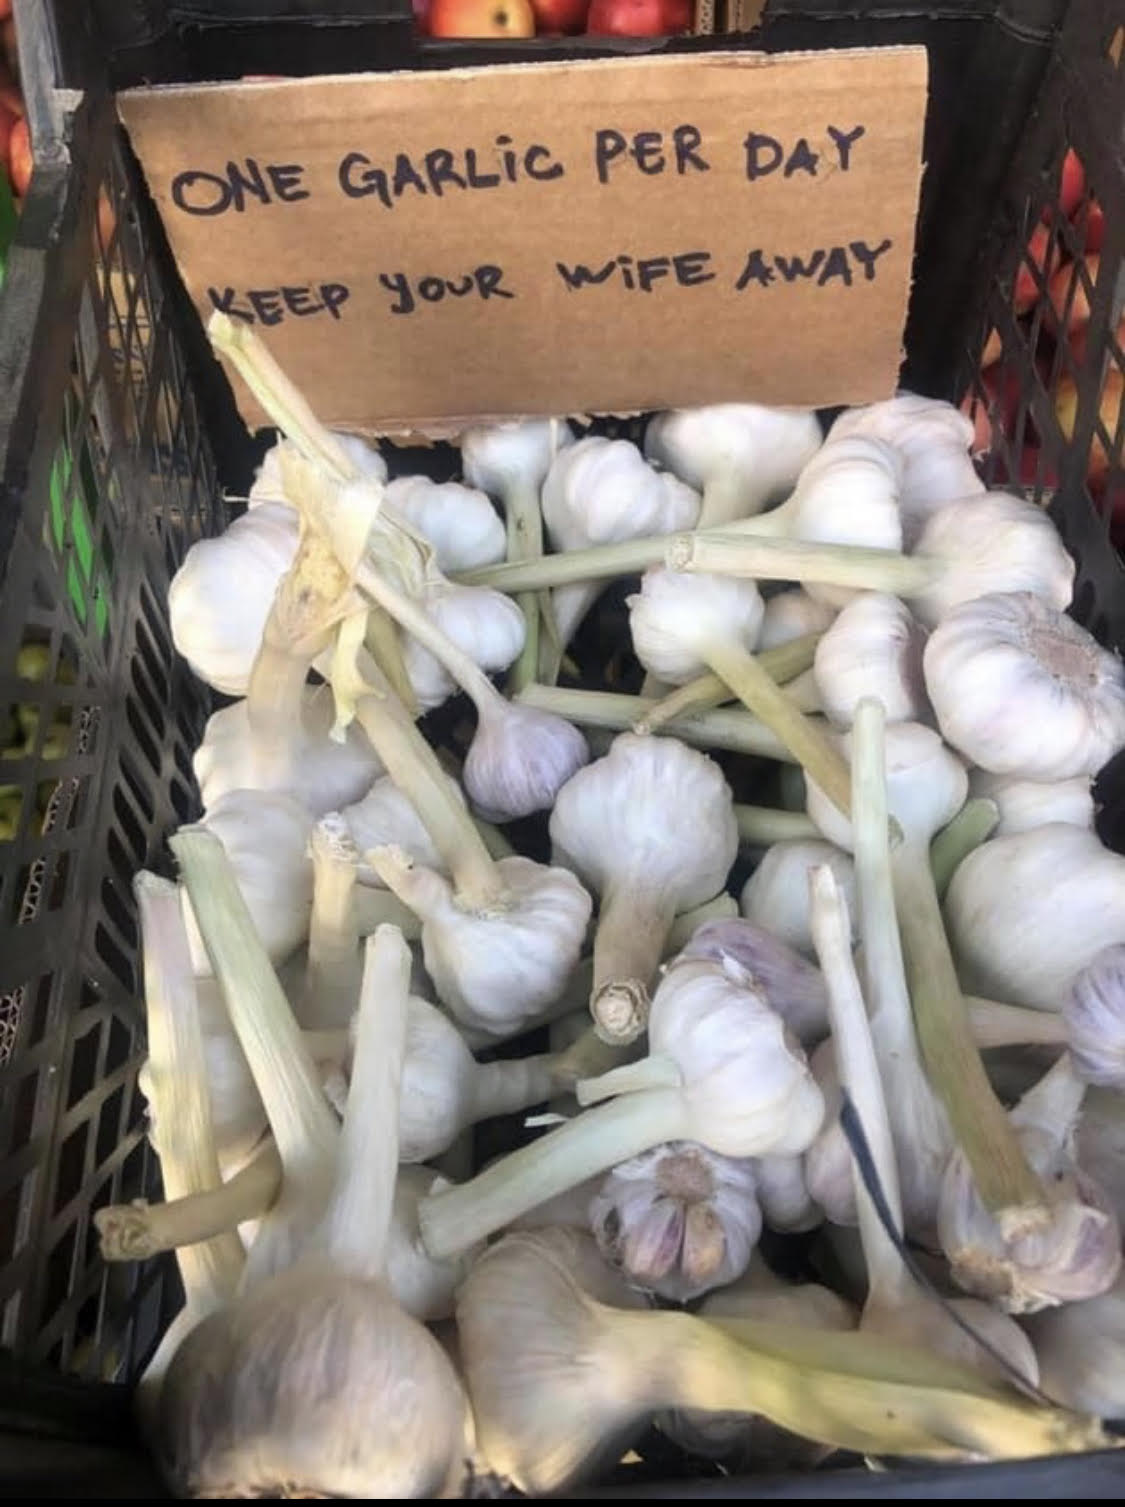 ONE GARLiC PER DAY
KEEP YOUR WiFE AWAY